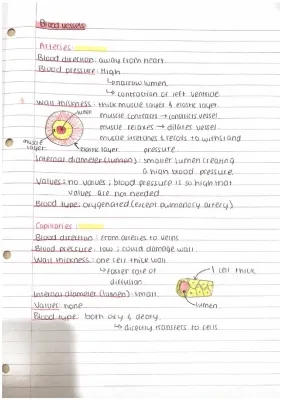 Blood vessels
Arteries:
Blood direction: away from heart.
Blood pressure: High
↳ narrow lumen
↳ contraction of left ventricle.
Wall thickness: thick muscle layer & elastic layer.
lumen
muscle contracts → constricts vessel.
muscle relaxes → dilates vessel.
muscle stretches & recoils to withstand
pressure.
muscle layer
elastic layer
Internal diameter (lumen): smaller lumen creating
a high blood pressure.
Valves: no valves; blood pressure is so high that
valves are not needed.
Blood type: oxygenated (except pulmonary artery).
Capillaries:
Blood direction: from arteries to veins
Blood pressure: low; could damage wall.
Wall thickness: one cell thick wall
↳ faster rate of
diffusion.
1 cell thick
Internal diameter (lumen): small.
lumen.
Valves: none.
Blood type: both oxy & deoxy.
↳ directly transfers to cells